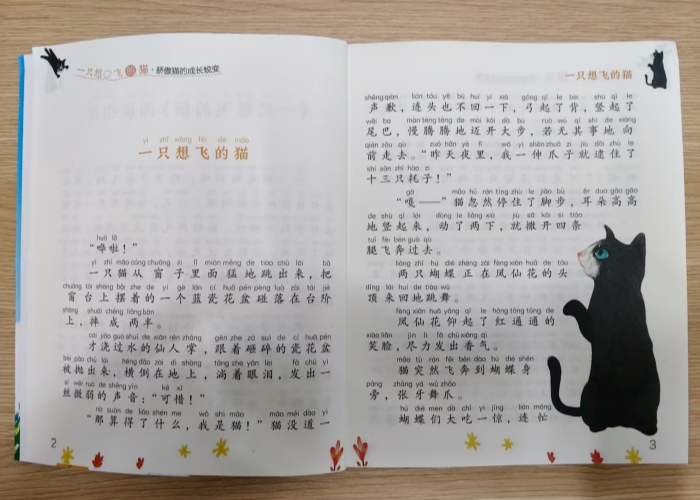 一只想飞的猫·骄傲猫的成长蜕变
yì zhī xiǎng fēi de māo
一只想飞的猫
huā lā
“哗啦！”
yì zhī māo cóng chuāng zi lǐ miàn měng de tiào chū lái bǎ
一只猫从窗子里面猛地跳出来，把
chuāng tái shàng bǎi zhe de yí gè lán cí huā pén pèng luò zài tái jiē
窗台上摆着的一个蓝瓷花盆碰落在台阶
shàng shuāi chéng liǎng bàn
上，摔成两半。
cái jiāo guò shuǐ de xiān rén zhǎng gēn zhe zá suì de cí huā pén
才浇过水的仙人掌，跟着砸碎的瓷花盆
bèi pāo chū lái héng dǎo zài dì shàng tǎng zhe yǎn lèi fā chū yì
被抛出来，横倒在地上，淌着眼泪，发出一
sī wēi ruò de shēng yīn kě xī
丝微弱的声音：“可惜！”
nà suàn de liǎo shén me wǒ shì māo māo méi dào yì
“那算得了什么，我是猫！”猫没道一
2
一只想飞的猫
shēng qiàn lián tóu yě bù huí yí xià gōng qǐ le bèi shù qǐ le
声歉，连头也不回一下，弓起了背，竖起了
wěi ba màn tēng tēng de mài kāi dà bù ruò wú qí shì de xiàng
尾巴，慢腾腾地迈开大步，若无其事地向
qián zǒu qù zuó tiān yè lǐ wǒ yì shēn zhuǎ zi jiù dǎi zhù le
前走去。“昨天夜里，我一伸爪子就逮住了
shí sān zhī hào zi
十三只耗子！”
gā māo hū rán tíng zhù le jiǎo bù ěr duo gāo gāo
“嘎——”猫忽然停住了脚步，耳朵高高
de shù qǐ lái dòng le liǎng xià jiù sā kāi sì tiáo
地竖起来，动了两下，就撒开四条
tuǐ fēi bēn guò qù
腿飞奔过去。
liǎng zhī hú dié zhèng zài fèng xiān huā de tóu
两只蝴蝶正在凤仙花的头
dǐng lái huí de tiào wǔ
顶来回地跳舞。
fèng xiān huā yǎng qǐ le hóng tōng tōng de
凤仙花仰起了红通通的
xiào liǎn jìn lì fā chū xiāng qì
笑脸，尽力发出香气。
māo tū rán fēi bēn dào hú dié shēn
猫突然飞奔到蝴蝶身
páng zhāng yá wǔ zhǎo
旁，张牙舞爪。
hú dié men dà chī yì jīng lián máng
蝴蝶们大吃一惊，连忙
3